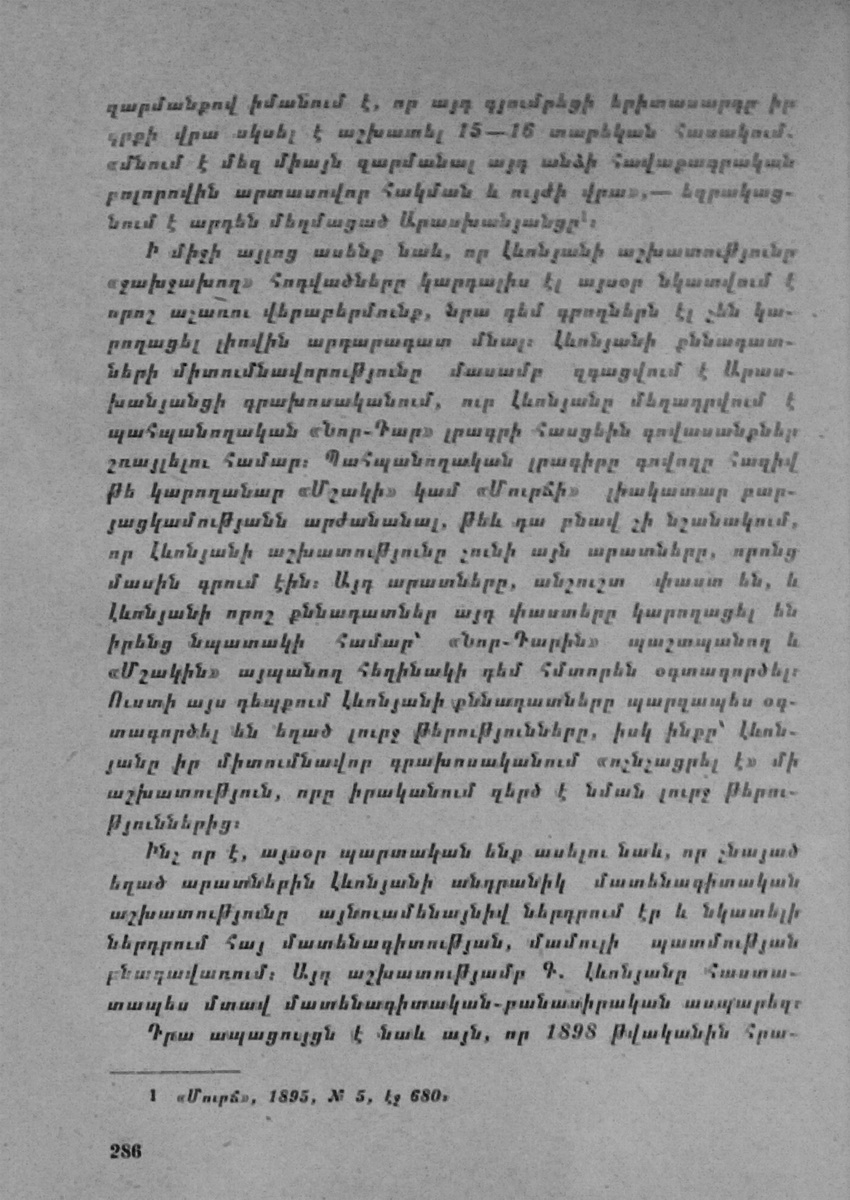 զարմանքով իմանում է, որ այդ գյումրեցի երիտասարդը իր
գրքի վրա սկսել է աշխատել 15—16 տարեկան հասակում.
«մնում է մեզ միայն զարմանալ այդ անձի հավաքագրական
բոլորովին արտասովոր հակման և ույժի վրա»,— եզրակաց-
նում է արդեն մեղմացած Արասխանյանցը¹։
Ի միջի այլոց ասենք նաև, որ Լևոնյանի աշխատությունը
«ջախջախող» հոդվածները կարդալիս էլ այսօր նկատվում է
որոշ աչառու վերաբերմունք, նրա դեմ գրողներն էլ չեն կա-
րողացել լիովին արդարադատ մնալ։ Լևոնյանի քննադատ-
ների միտումնավորությունը մասամբ զգացվում է Արաս-
խանյանցի գրախոսականում, ուր Լևոնյանը մեղադրվում է
պահպանողական «Նոր-Դար» լրագրի հասցեին գովասանքներ
շռայլելու համար։ Պահպանողական լրագիրը գովողը հազիվ
թե կարողանար «Մշակի» կամ «Մուրճի» լիակատար բար-
յացկամությանն արժանանալ, թեև դա բնավ չի նշանակում,
որ Լևոնյանի աշխատությունը չունի այն արատները, որոնց
մասին գրում էին։ Այդ արատները, անշուշտ փաստ են, և
Լևոնյանի որոշ քննադատներ այդ փաստերը կարողացել են
իրենց նպատակի համար՝ «Նոր-Դարին» պաշտպանող և
«Մշակին» այպանող հեղինակի դեմ հմտորեն օգտագործել։
Ուստի այս դեպքում Լևոնյանի քննադատները պարզապես օգ-
տագործել են եղած լուրջ թերությունները, իսկ ինքը՝ Լևոն-
յանը իր միտումնավոր գրախոսականում «ոչնչացրել է» մի
աշխատություն, որը իրականում զերծ է նման լուրջ թերու-
թյուններից։
Ինչ որ է, այսօր պարտական ենք ասելու նաև, որ չնայած
եղած արատներին Լևոնյանի անդրանիկ մատենագիտական
աշխատությունը այնուամենայնիվ ներդրում էր և նկատելի
ներդրում հայ մատենագիտության, մամուլի պատմության
բնագավառում։ Այդ աշխատությամբ Գ. Լևոնյանը հաստա-
տապես մտավ մատենագիտական-բանասիրական ասպարեզ։
Դրա ապացույցն է նաև այն, որ 1898 թվականին հրա-
1 «Մուրճ», 1895, № 5, էջ 680։
286